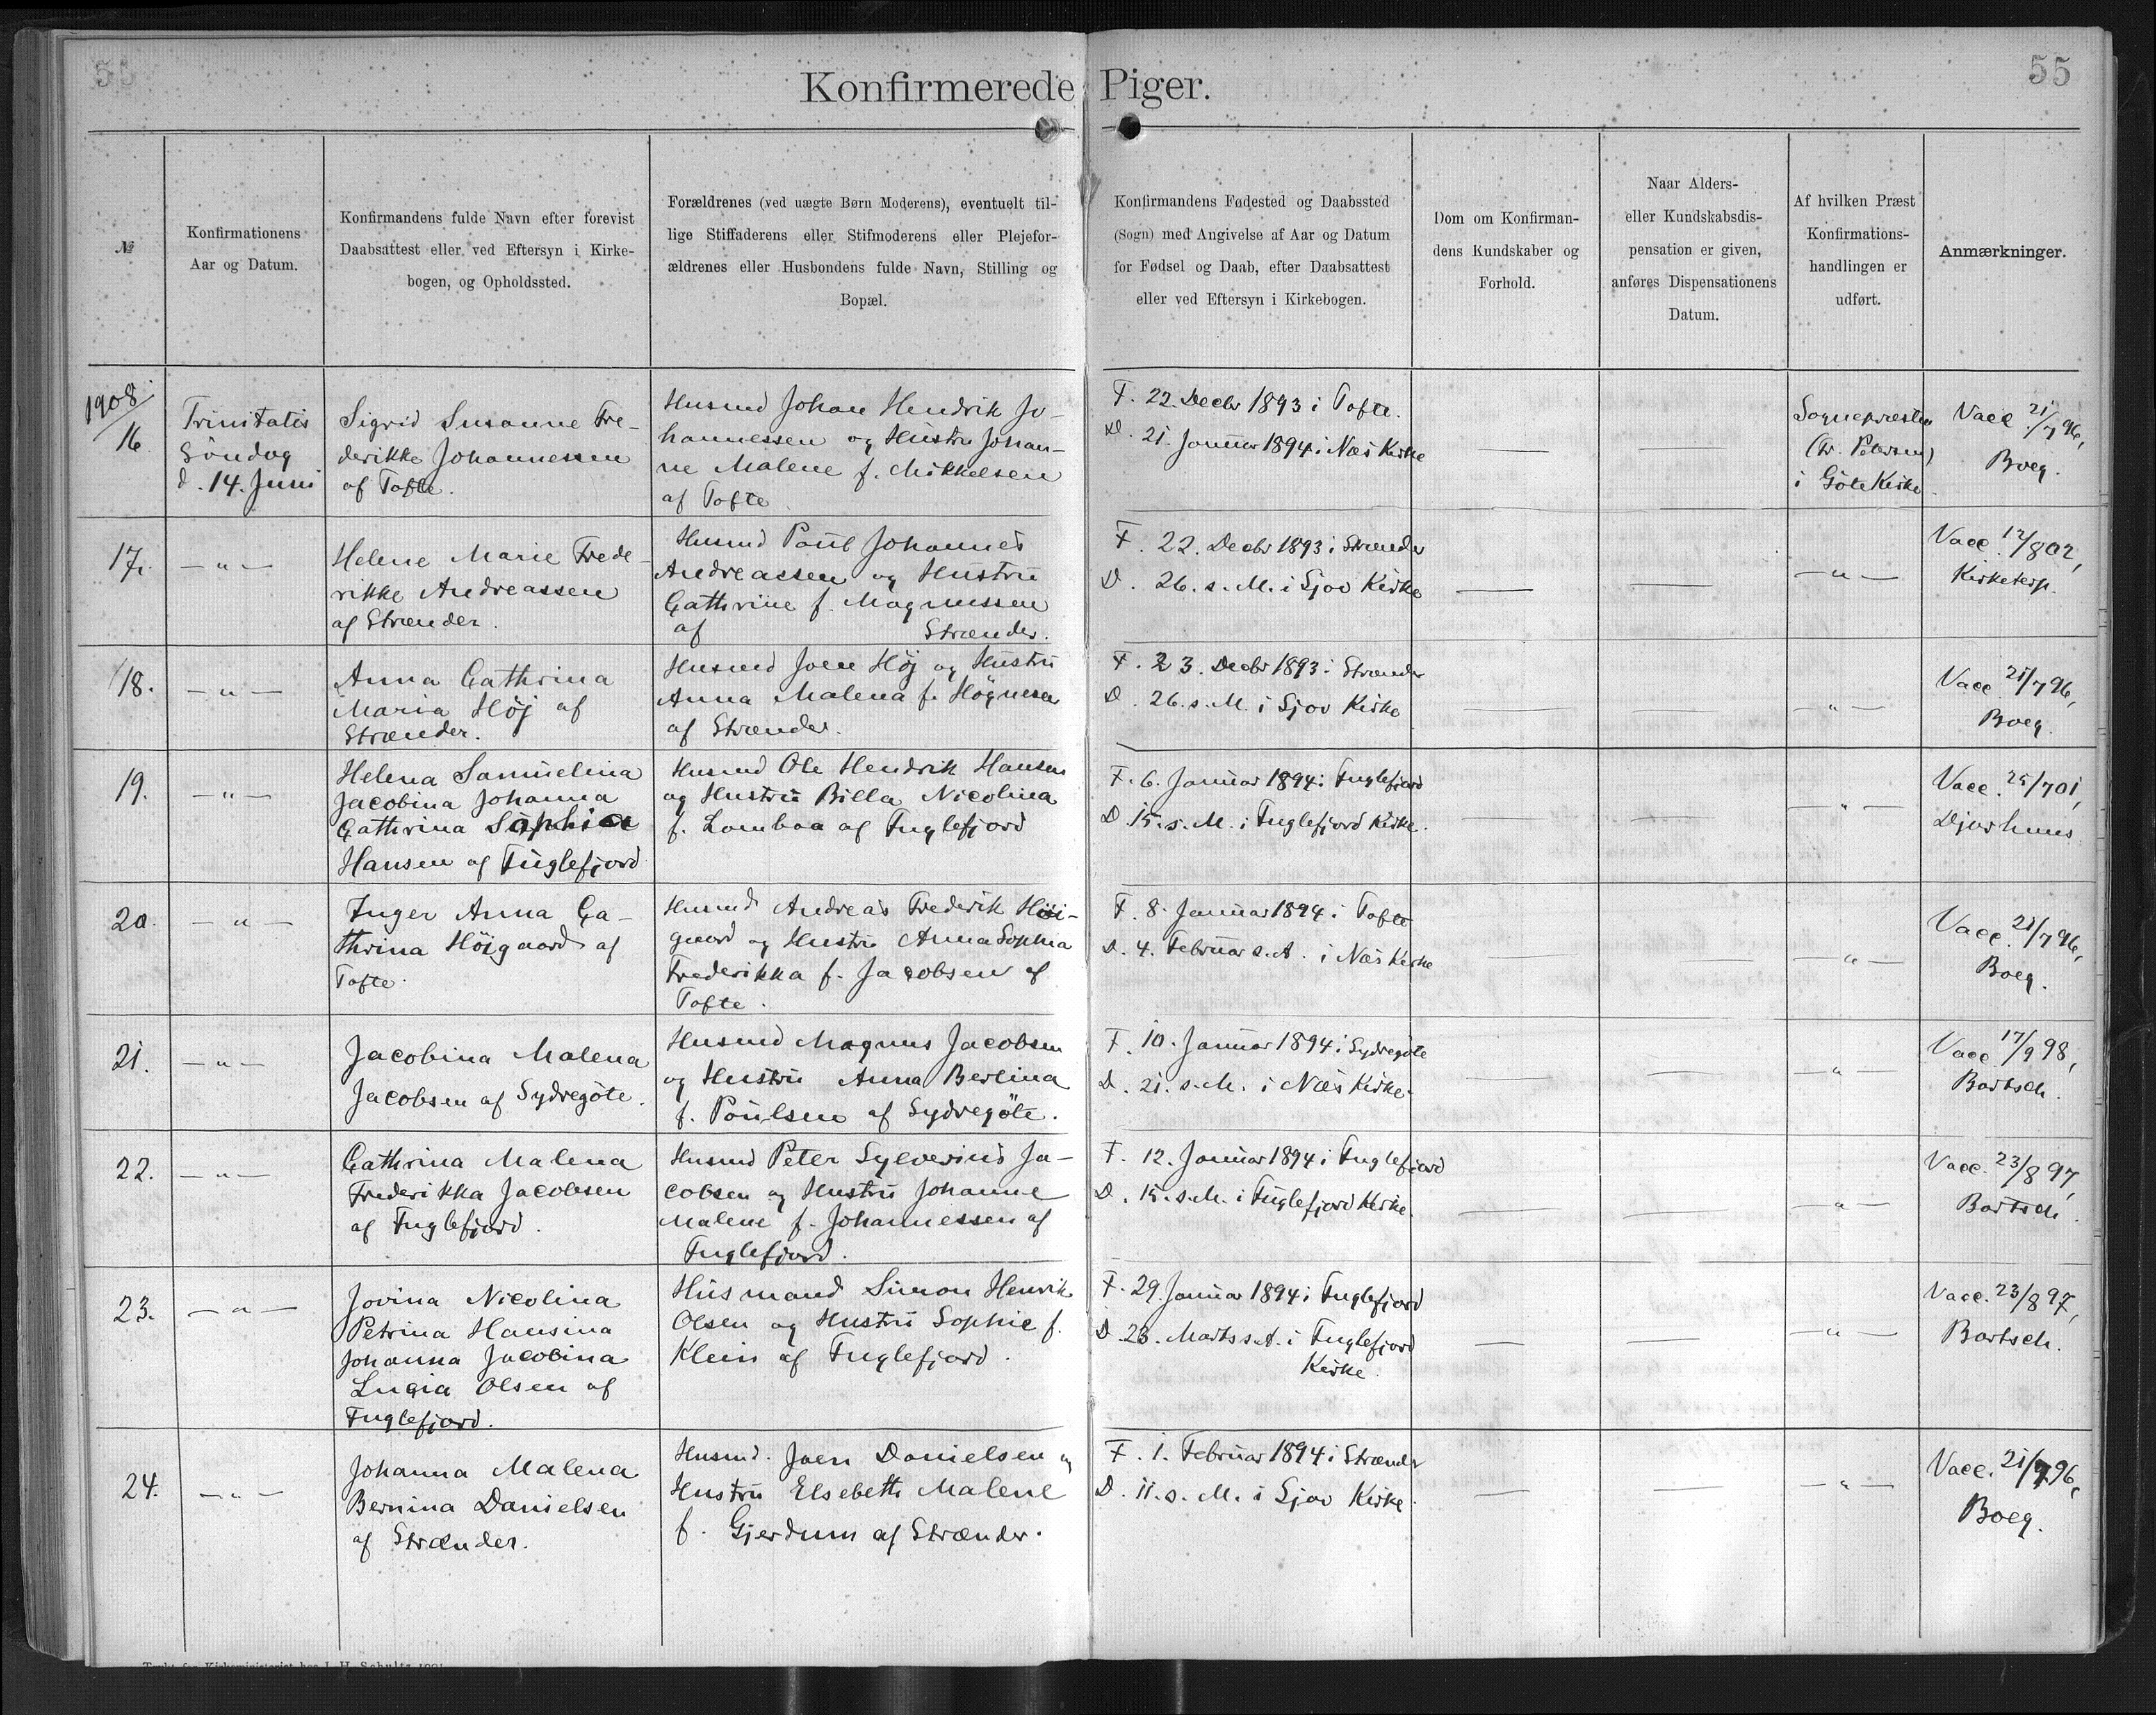 55
55
Konfirmerede Piger.
№
Konfirmationens
Aar og Datum.
Konfirmandens fulde Navn efter forevist
Daabsattest eller ved Eftersyn i Kirke-
bogen, og Opholdssted.
Forældrenes (ved uægte Børn Moderens), eventuelt til-
lige Stiffaderens eller Stifmoderens eller Plejefor-
ældrenes eller Husbondens fulde Navn, Stilling og
Bopæl.
Konfirmandens Fødested og Daabssted
(Sogn) med Angivelse af Aar og Datum
for Fødsel og Daab, efter Daabsattest
eller ved Eftersyn i Kirkebogen.
Dom om Konfirman-
dens Kundskaber og
Forhold.
Naar Alders-
eller Kundskabsdis-
pensation er given,
anføres Dispensationens
Datum.
Af hvilken Præst
Konfirmations-
handlingen er
udført.
Anmærkninger.
1908
16
Trinitatis
Söndag
d. 14. Juni
Sigrid Susanne Fre-
derikke Johannessen
af Tofte.
Husmd Johan Hendrik Jo-
hannessen og Hustru Johan-
ne Malene f. Mikkelsen
af Tofte
F. 22. Decbr 1893 i Tofte.
D. 21. Januar 1894 i Næs Kirke
—
—
Sognepræsten
(Fr. Petersen)
i Göte Kirke
Vacc. 21/7 96,
Boeg.
17.
— " —
Helene Marie Frede-
rikke Andreassen
af Strænder.
Husmd Poul Johannes
Andreassen og Hustru
Cathrine f. Magnussen
af Strænder.
F. 22. Decbr 1893 i Strænder
D. 26. s. M. i Sjov Kirke
—
—
— " —
Vacc. 12/8 02,
Kirketerp.
18.
— " —
Anna Cathrina
Maria Höj af
Strænder.
Husmd Joen Höj og Hustru
Anna Malena f. Högnesen
af Strænder.
F. 23. Decbr 1893 i Strænder
D. 26. s. M. i Sjov Kirke
—
—
— " —
Vacc. 21/7 96,
Boeg.
19.
— " —
Helena Samuelina
Jacobina Johanna
Cathrina Sophia
Hansen af Fuglefjord
Husmd Ole Hendrik Hansen
og Hustru Billa Nicolina
f. Lamboa af Fuglefjord
F. 6. Januar 1894 i Fuglefjord
D. 15. s. M. i Fuglefjord Kirke.
— " —
Vacc. 25/7 01,
Djurhuus
20.
— " —
Inger Anna Ca-
thrina Höjgaard af
Tofte.
Husmd Andreas Frederik Höi-
gaard og Hustru Anna Sophia
Frederikka f. Jacobsen af
Tofte.
F. 8. Januar 1894 i Tofte
D. 4. Februar s. A. i Næs Kirke
—
—
— " —
Vacc. 21/7 96,
Boeg.
21.
— " —
Jacobina Malena
Jacobsen af Sydregöte.
Husmd Magnus Jacobsen
og Hustru Anna Berlina
f. Poulsen af Sydregöte.
F. 10. Januar 1894 i Sydregöte
D. 21. s. M. i Næs Kirke.
—
—
— " —
Vacc. 17/9 98,
Bartsch.
22.
— " —
Cathrina Malena
Frederikka Jacobsen
af Fuglefjord.
Husmd Peter Sylverius Ja-
cobsen og Hustru Johanne
Malene f. Johannessen af
Fuglefjord.
F. 12. Januar 1894 i Fuglefjord
D. 15. s. M. i Fuglefjord Kirke.
—
—
— " —
Vacc. 23/8 97,
Bartsch.
23.
— " —
Jovina Nicolina
Petrina Hansina
Johanna Jacobina
Lucia Olsen af
Fuglefjord.
Husmand Simon Henrik
Olsen og Hustru Sophie f.
Klein af Fuglefjord.
F. 29. Januar 1894 i Fuglefjord
D. 23. Marts s. A. i Fuglefjord
Kirke.
—
—
— " —
Vacc. 23/8 97,
Bartsch.
24.
— " —
Johanna Malena
Bernina Danielsen
af Strænder.
Husmd. Joen Danielsen og
Hustru Elsebeth Malene
f. Gjerdum af Strænder.
F. 1. Februar 1894 i Strænder
D. 11. s. M. i Sjov Kirke.
—
—
— " —
Vacc. 21/7 96,
Boeg.